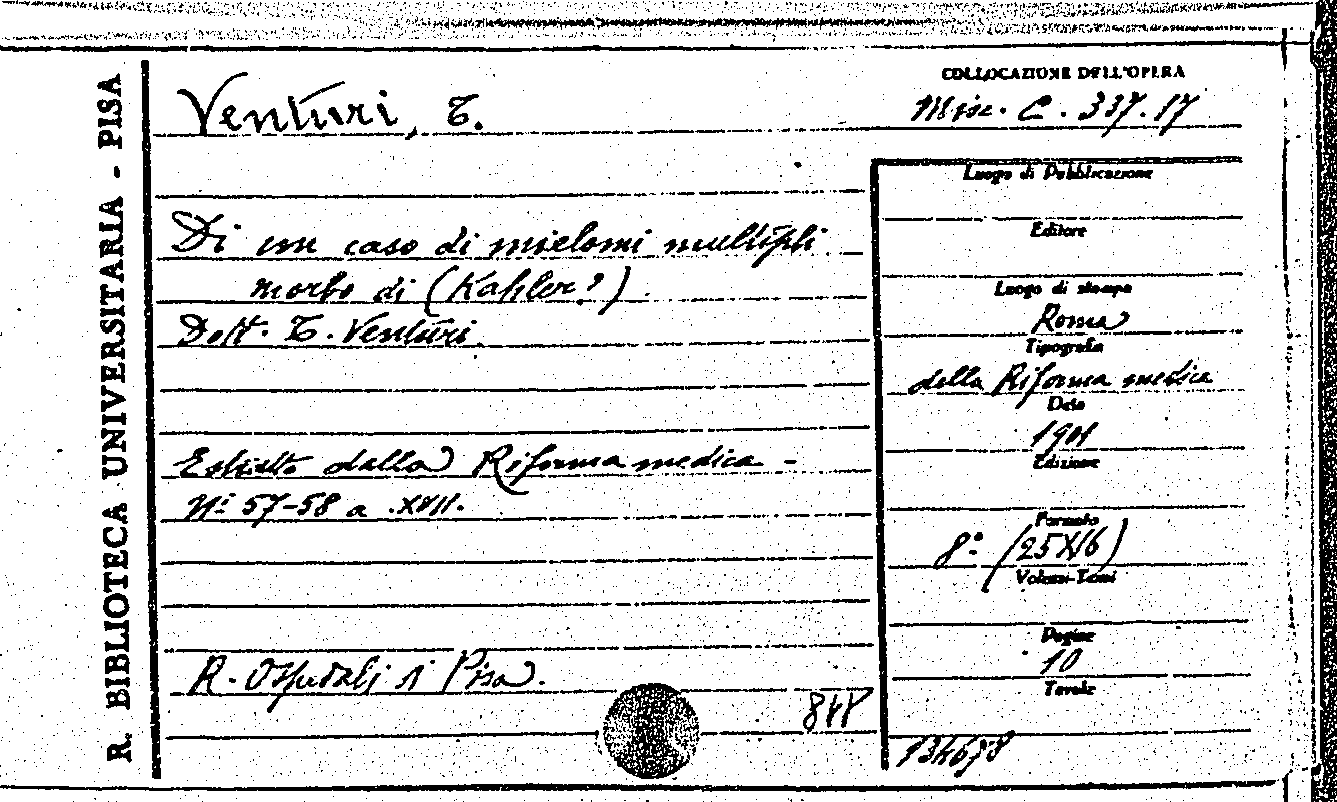 R. BIBLIOTECA UNIVERSITARIA - PISA
Venturi, T.
COLLOCAZIONE DELL'OPERA
Misc. C. 337.17
Di un caso di mielomi multipli
morbo di (Kahler?)
Dott. T. Venturi
Estratto dalla Riforma medica -
N.i 57-58 a. XVII.
R. Ospedali di Pisa.
848
Luogo di Pubblicazione
Editore
Luogo di stampa
Roma
Tipografia
della Riforma medica
Data
1901
Edizione
Formato
8° (25X16)
Volumi-Tomi
Pagine
10
Tavole
134678